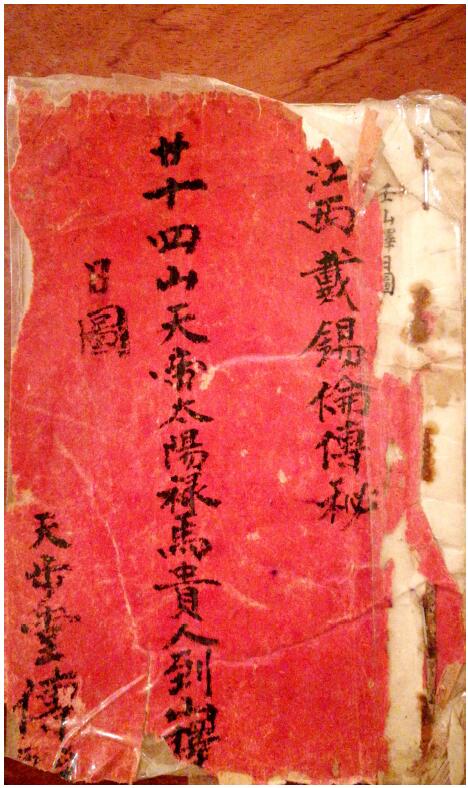 壬山擇日圖
江西戴錫倫傳秘
廿十四山天帝太陽禄馬貴人到山擇
日圖
天步靈傳